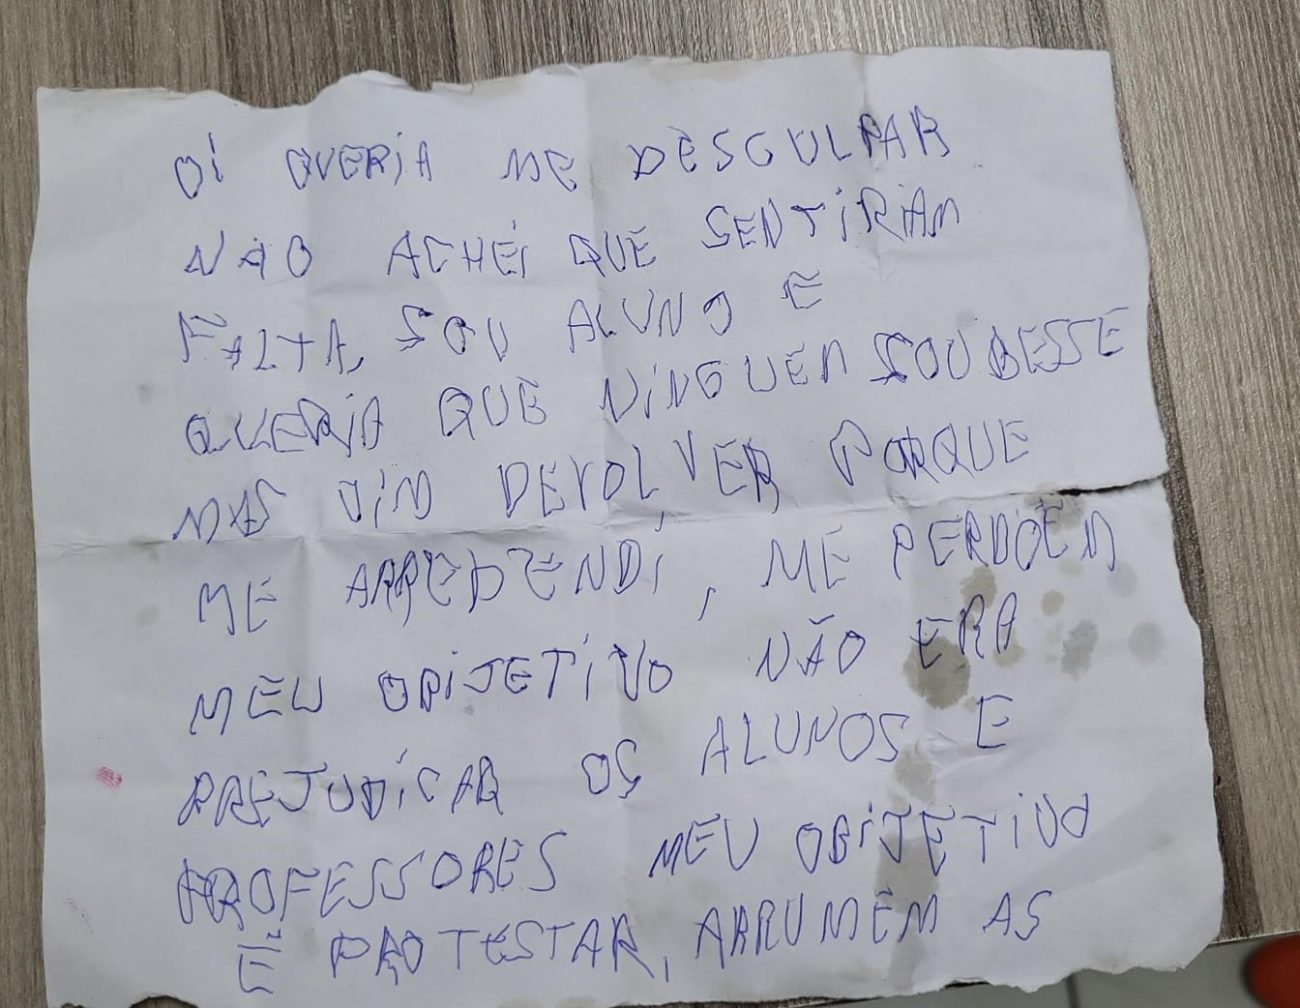 OI QUERIA ME DESCULPAR
NÃO ACHEI QUE SENTIRIAM
FALTA, SOU ALUNO E
QUERIA QUE NINGUEM SOUBESSE
MAS VIM DEVOLVER PORQUE
ME ARREPENDI, ME PERDOEM
MEU OBIJETIVO NÃO ERA
PREJUDICAR OS ALUNOS E
PROFESSORES MEU OBIJETIVO
É PROTESTAR, ARRUMEM AS